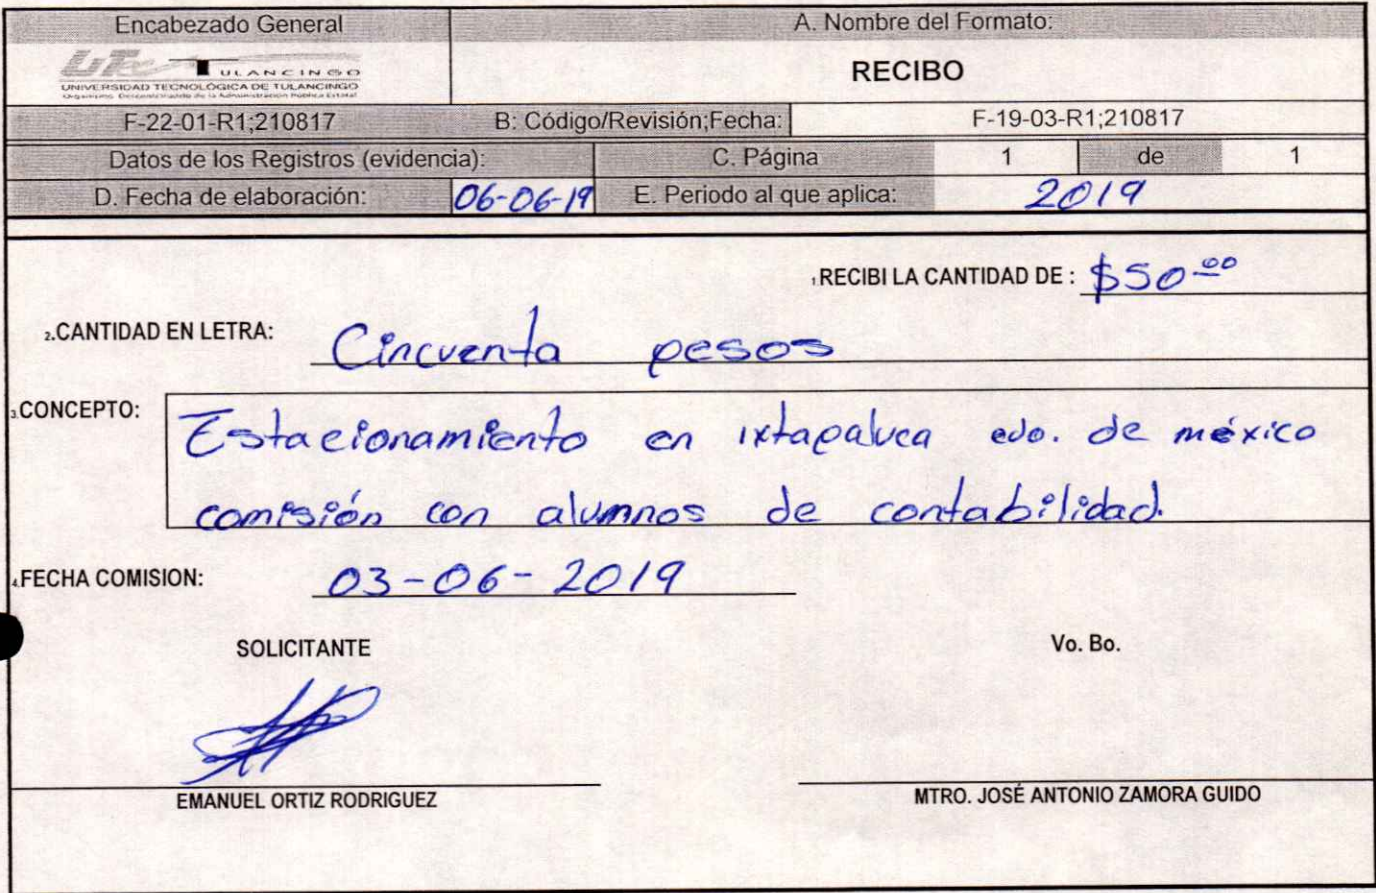 Encabezado General
A. Nombre del Formato:
UTec TULANCINGO
UNIVERSIDAD TECNOLÓGICA DE TULANCINGO
Organismo Descentralizado de la Administración Pública Estatal
RECIBO
F-22-01-R1;210817 B: Código/Revisión;Fecha: F-19-03-R1;210817
Datos de los Registros (evidencia): C. Página 1 de 1
D. Fecha de elaboración: 06-06-19 E. Periodo al que aplica: 2019
1.RECIBI LA CANTIDAD DE : $50.00
2.CANTIDAD EN LETRA: Cincuenta pesos
3.CONCEPTO: Estacionamiento en ixtapaluca edo. de méxico
comisión con alumnos de contabilidad.
4.FECHA COMISION: 03-06-2019
SOLICITANTE Vo. Bo.
EMANUEL ORTIZ RODRIGUEZ MTRO. JOSÉ ANTONIO ZAMORA GUIDO